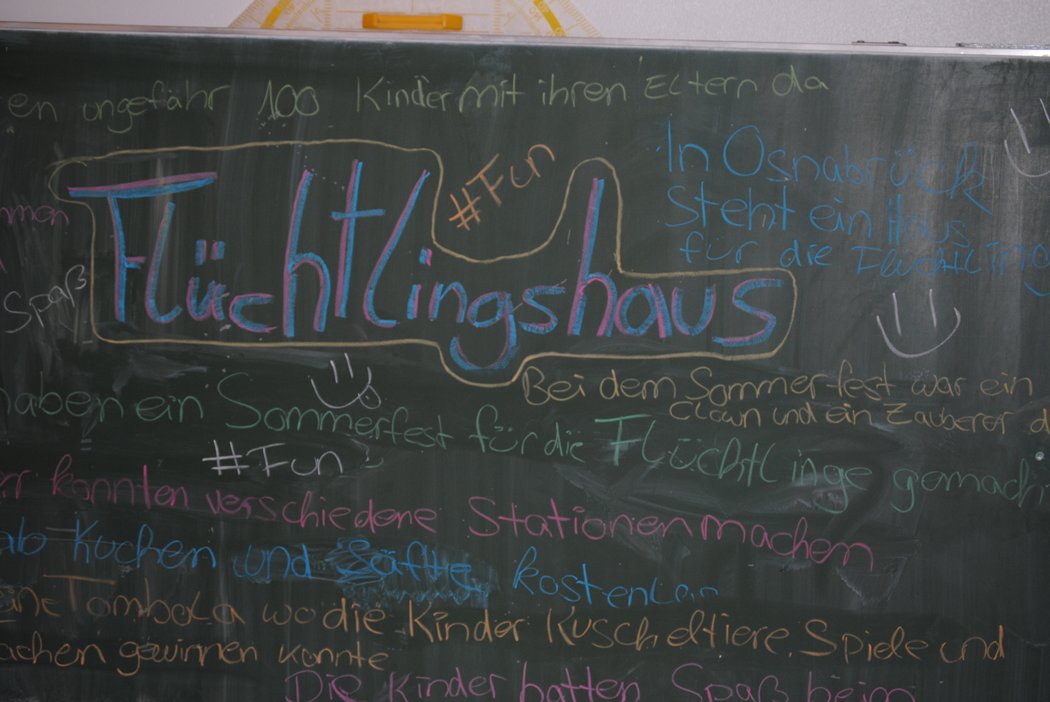 en ungefähr 100 Kinder mit ihren Eltern da
#Fun
In Osnabrück
steht ein Haus
für die Flüchtling
Flüchtlingshaus
hmen
Spaß
Bei dem Sommerfest war ein
Clown und ein Zauberer d
haben ein Sommerfest für die Flüchtlinge gemach
#Fun
er konnten verschiedene Stationen machen
ab Kuchen und Säfte
eine Tombola wo die Kinder Kuscheltiere, Spiele und
achen gewinnen konnte
Die Kinder hatten Spaß beim